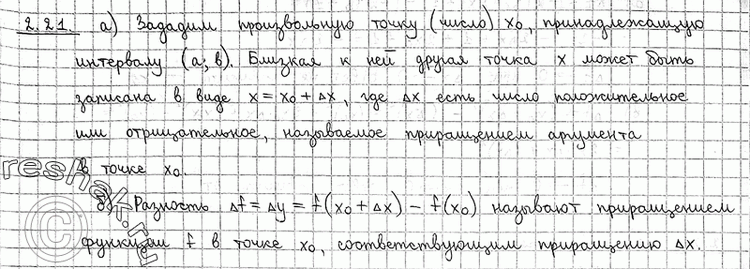 2.21. а) Зададим произвольную точку (число) x₀, принадлежащую
интервалу (a; b). Близкая к ней другая точка x может быть
записана в виде x = x₀ + Δx, где Δx есть число положительное
или отрицательное, называемое приращением аргумента
в точке x₀.
б) Разность Δf = Δy = f(x₀ + Δx) − f(x₀) называют приращением
функции f в точке x₀, соответствующим приращению Δx.
reshak.ru
©